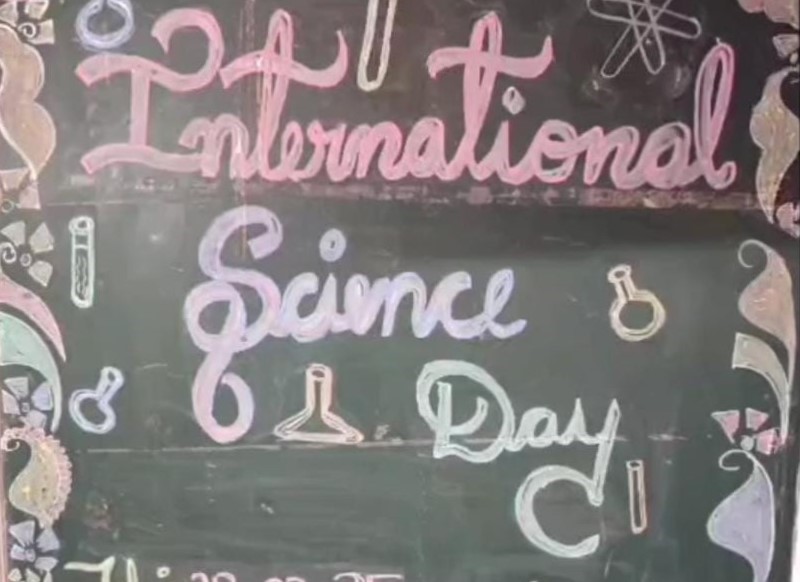 International
Science
Day